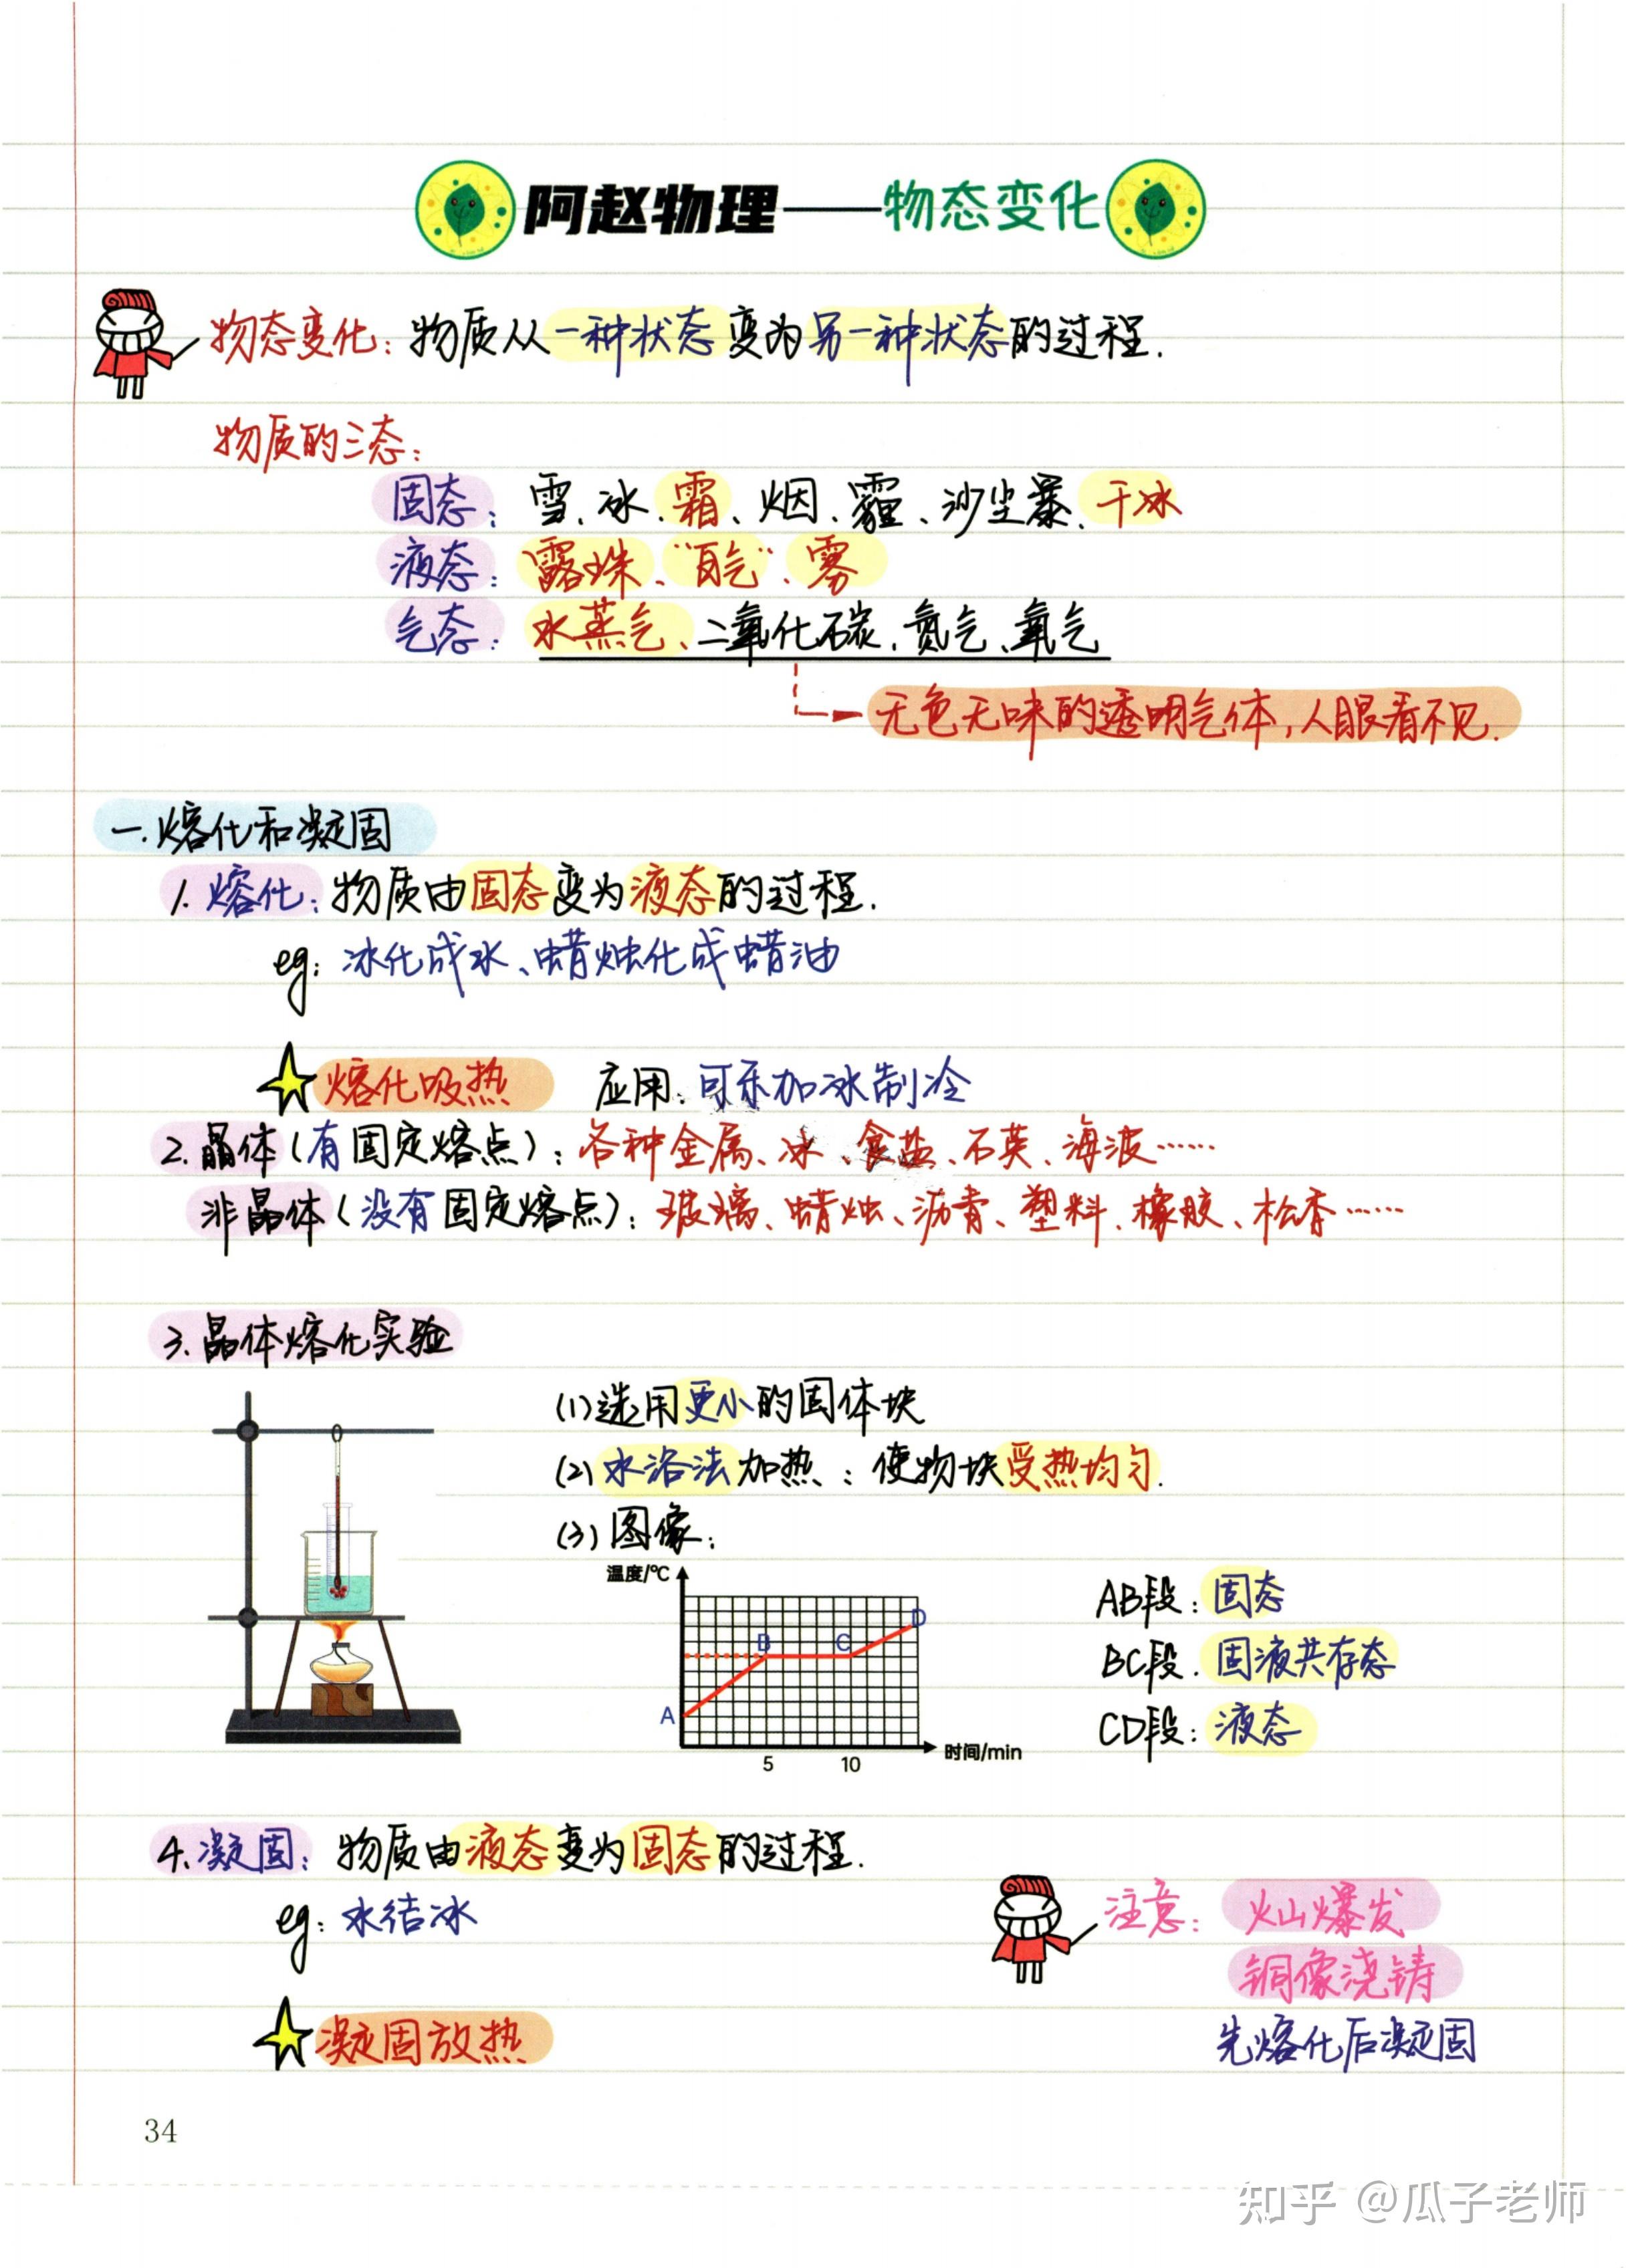 阿赵物理——物态变化
物态变化：物质从一种状态变为另一种状态的过程.
物质的三态：
固态：雪、冰、霜、烟、霾、沙尘暴、干冰
液态：露珠、“白气”、雾
气态：水蒸气、二氧化碳、氮气、氧气
无色无味的透明气体,人眼看不见.
一.熔化和凝固
1.熔化：物质由固态变为液态的过程.
eg：冰化成水、蜡烛化成蜡油
熔化吸热 应用：可乐加冰制冷
2.晶体(有固定熔点)：各种金属、冰、食盐、石英、海波……
非晶体(没有固定熔点)：玻璃、蜡烛、沥青、塑料、橡胶、松香……
3.晶体熔化实验
(1)选用更小的固体块
(2)水浴法加热：使物块受热均匀.
(3)图像：
温度/℃
A B C D
5 10 时间/min
AB段：固态
BC段：固液共存态
CD段：液态
4.凝固：物质由液态变为固态的过程.
eg：水结冰
凝固放热
注意：火山爆发
铜像浇铸
先熔化后凝固
34
知乎 @瓜子老师